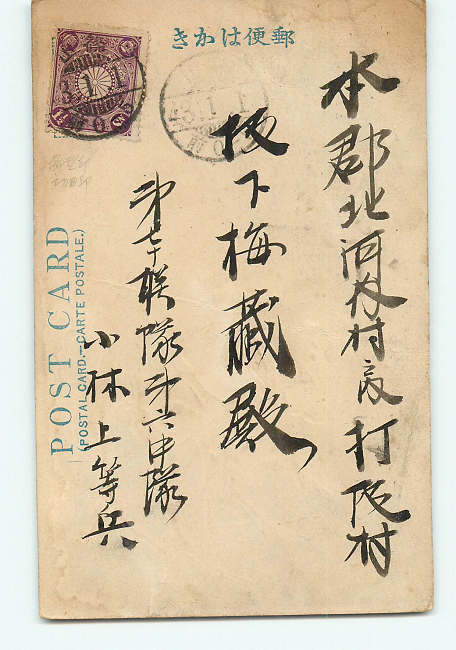 郵便はかき
本郡北河内村字打阪村
坂下梅藏殿
第七十聯隊第六中隊
小林上等兵
POST CARD
(POSTAL CARD.—CARTE POSTALE.)
1 1